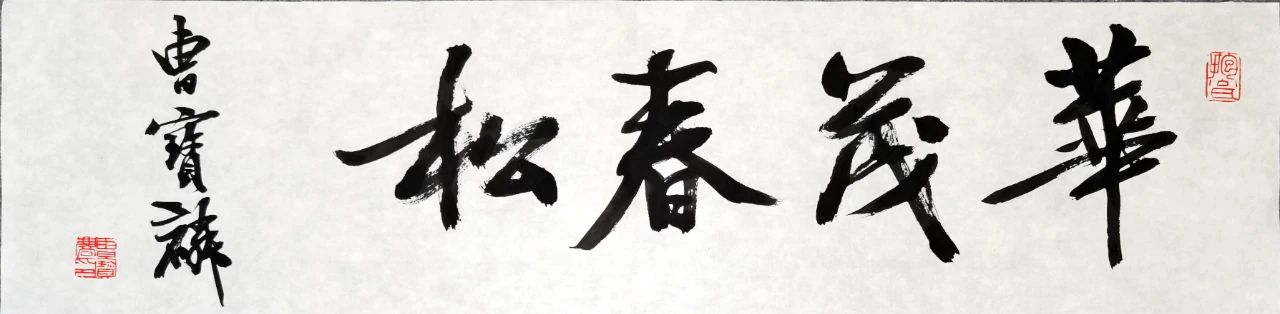 華茂春松
曹寶麟